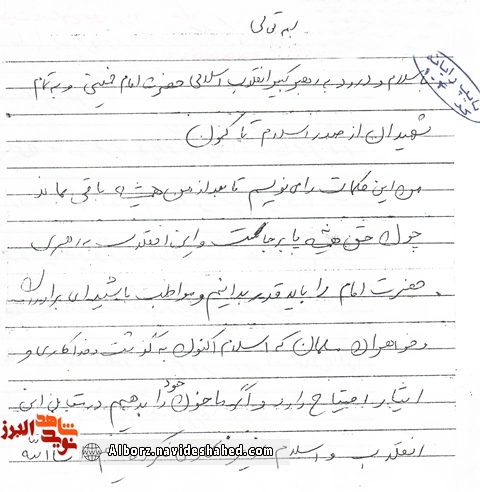 به تعالی
با سلام و درود به رهبر کبیر انقلاب اسلامی حضرت امام خمینی و به تمام
شهیدان از صدر اسلام تا کنون
من این کلمات را می نویسم تا بعد از من همیشه باقی بماند
چون حق همیشه پا برجاست و این انقلاب به رهبری
حضرت امام را باید قدر بدانیم و مواظب باشید ای برادران
و خواهران مسلمان که اسلام اکنون به گذشت و فداکاری و
ایثار احتیاج دارد و اگر ما خون خود را بدهیم در مقابل این
انقلاب و اسلام
شاهد
نوید
البرز
Alborz.navideshahed.com
تایپ رایانه